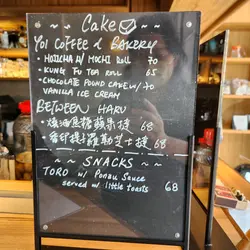 ~ ~ Cake ~ ~
YOI COFFEE & BAKERY
- HOJICHA W/ MOCHI ROLL 70
- KUNG FU TEA ROLL 65
- CHOCOLATE POUND CAKE W/ 70
VANILLA ICE CREAM
BETWEEN HARU
焦糖蘋果撻 68
香印提子 芝士撻 68
~ ~ SNACKS ~ ~
TORO w/ Ponzu Sauce
served w/ little toasts 68